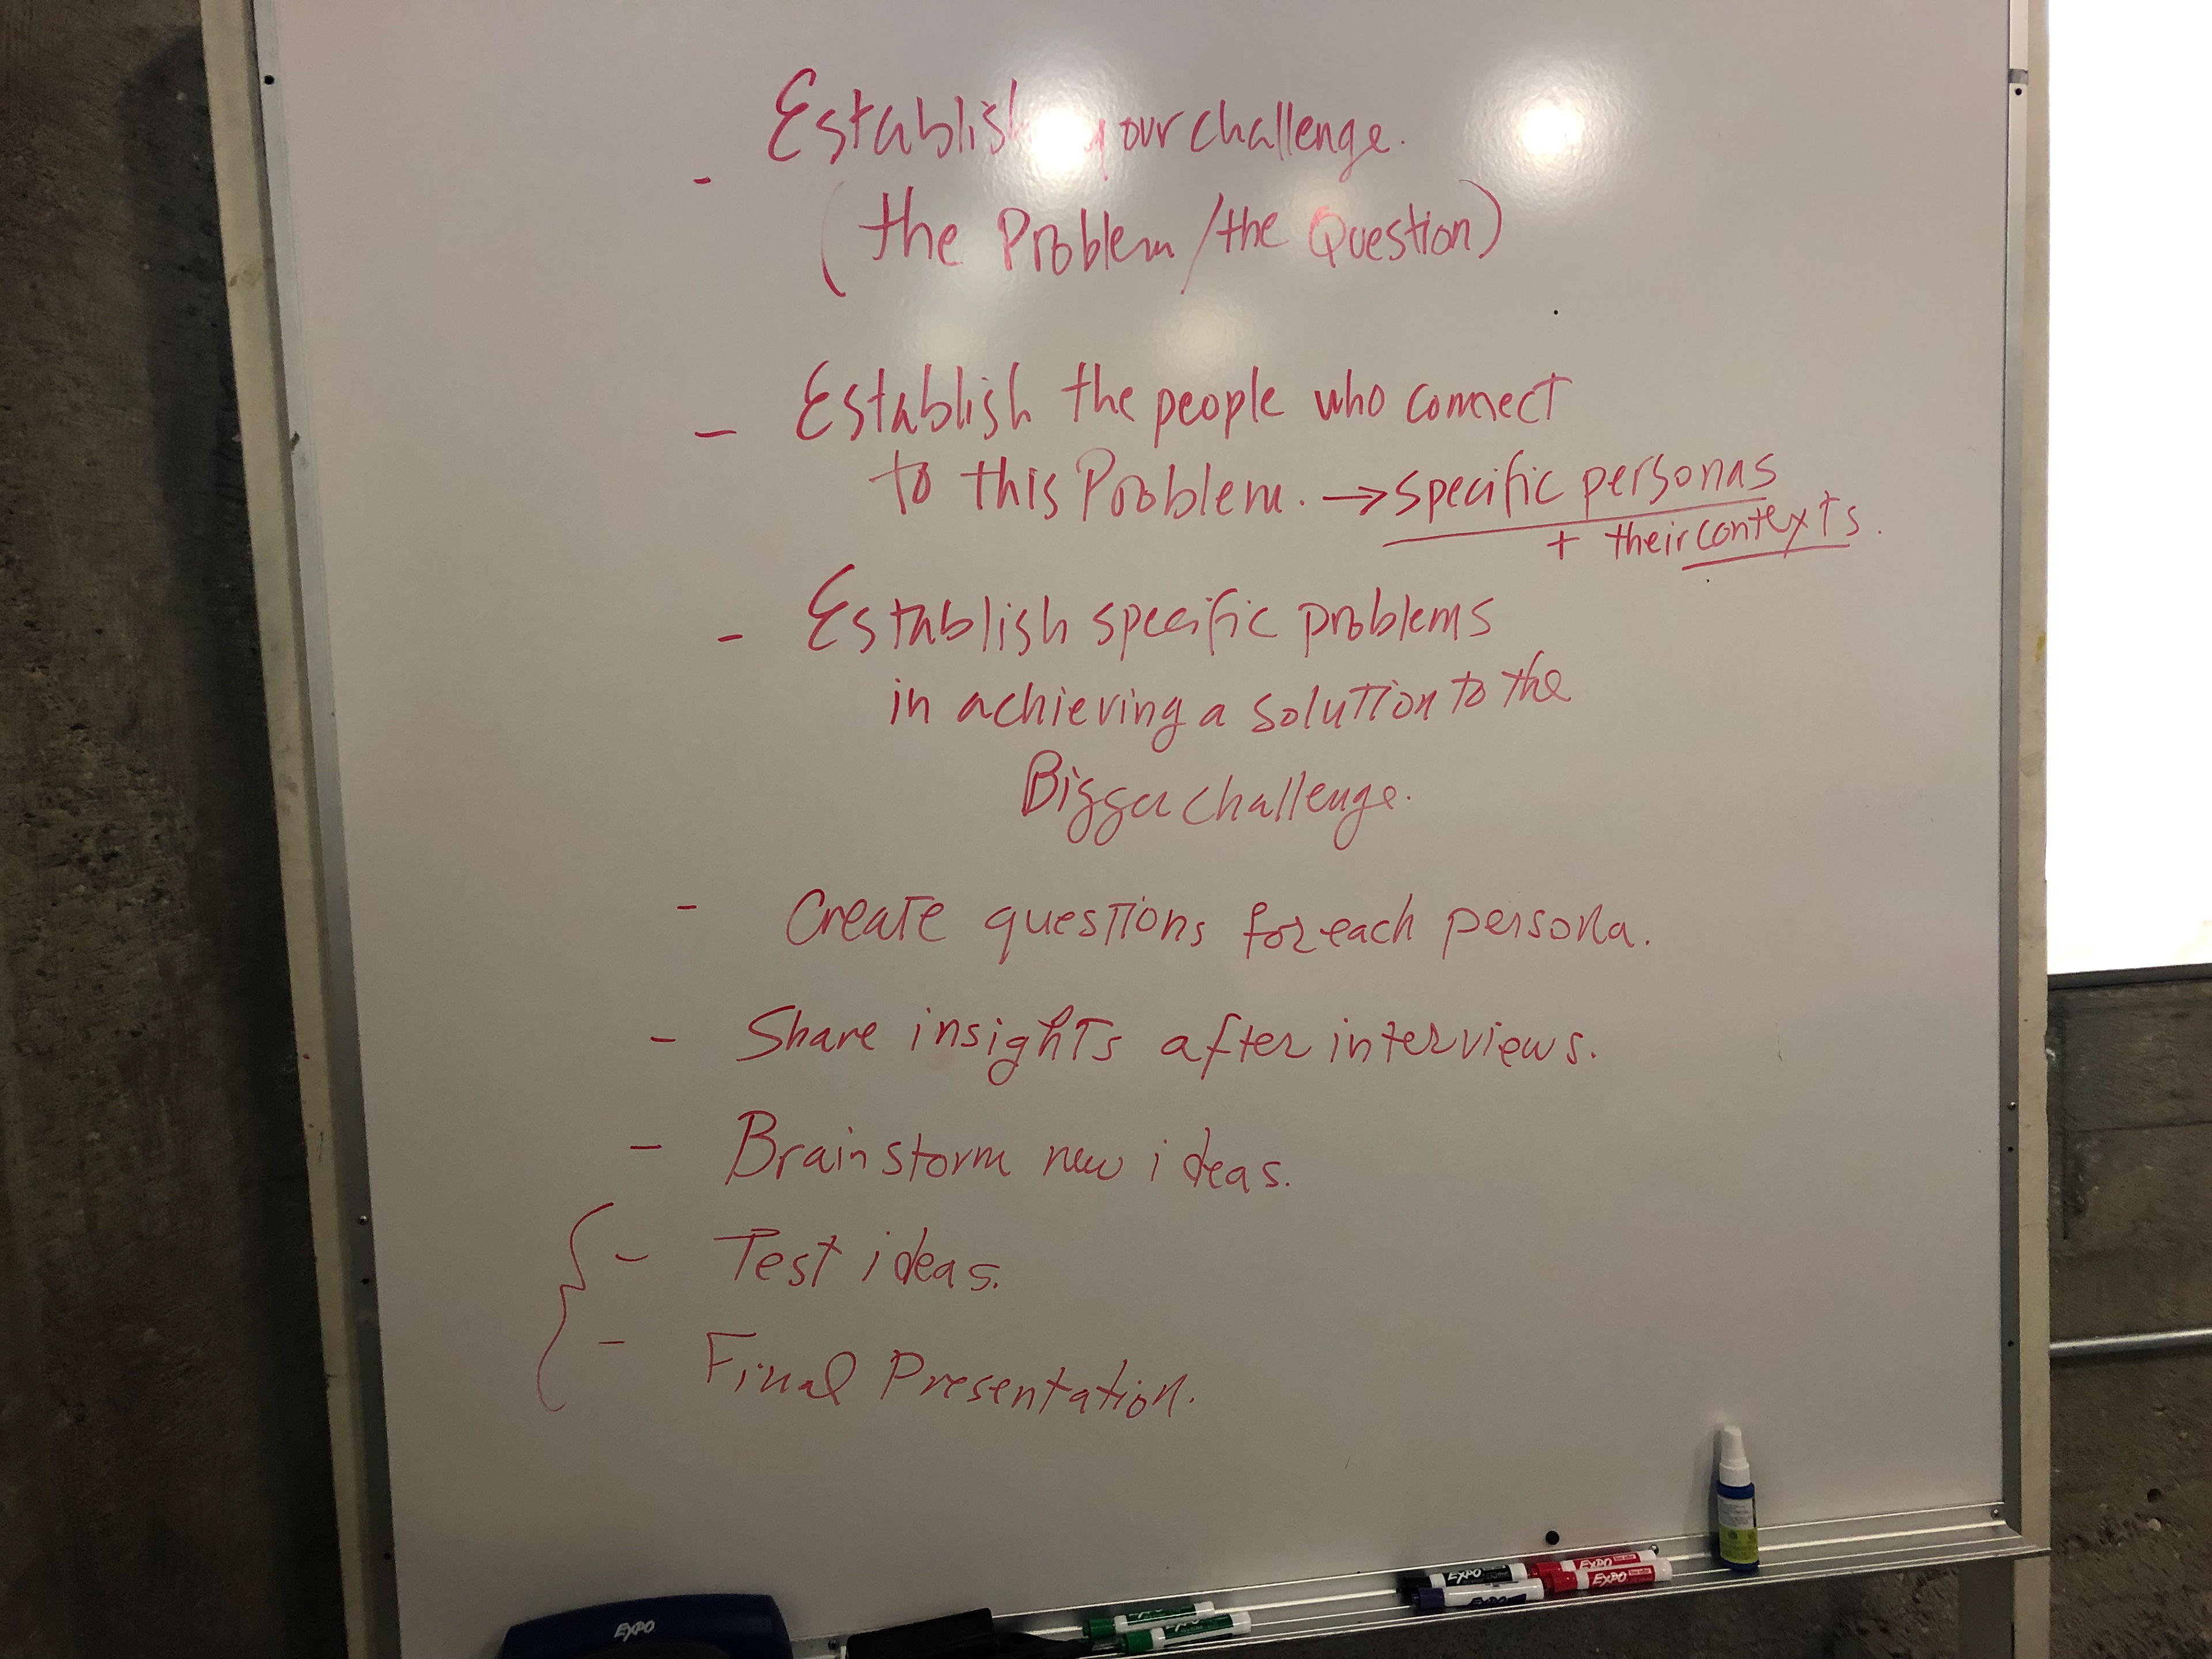 - Establish your challenge.
(the Problem/the Question)
- Establish the people who connect
to this Problem. → specific personas
+ their contexts.
- Establish specific problems
in achieving a solution to the
Bigger challenge.
- Create questions for each persona.
- Share insights after interviews.
- Brainstorm new ideas.
- Test ideas.
- Final Presentation.
EXPO
EXPO
EXPO
EXPO
EXPO